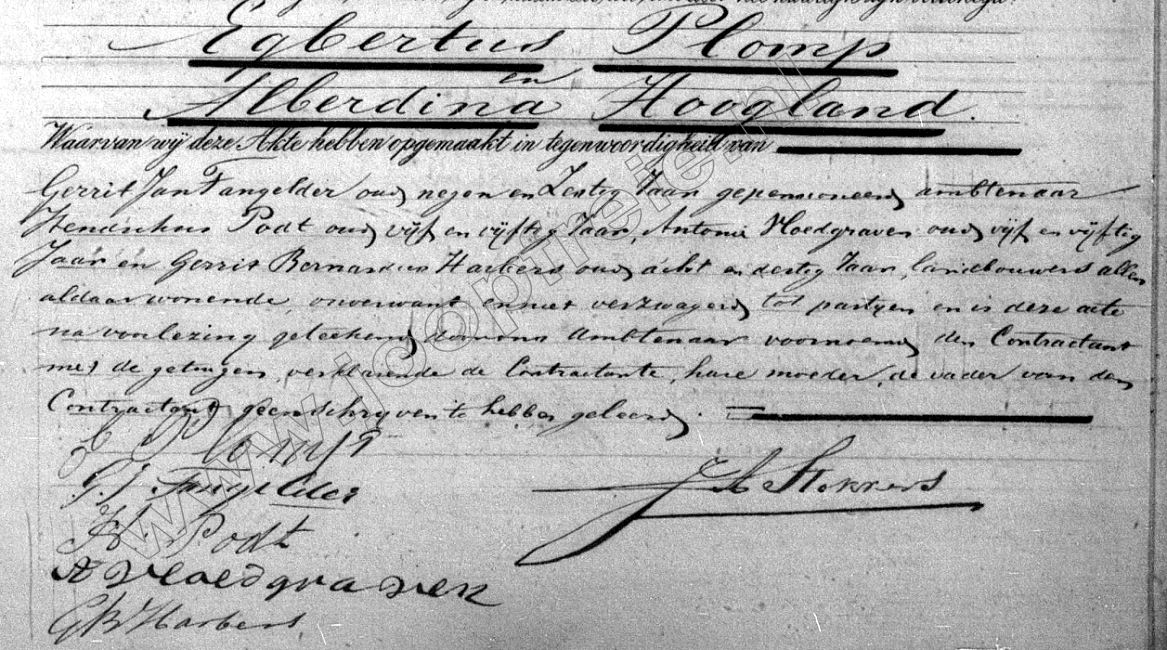 Egbertus Plomp
en
Alberdina Hoogland.
Waarvan wij deze Akte hebben opgemaakt in tegenwoordigheid van
Gerrit Jan Tangelder oud negen en Zestig Jaar gepensioneerd ambtenaar
Hendrikus Podt oud vijf en vijftig Jaar, Antonie Vloedgraven oud vijf en vijftig
Jaar en Gerrit Bernardus Harbers oud acht en dertig Jaar, landbouwers allen
aldaar wonende, onverwant en niet verzwagerd tot partyen en is deze acte
na voorlezing geteekend door ons Ambtenaar voornoemd den Contractant
met de getuigen, verklarende de Contractante, hare moeder, de vader van den
Contractant geen schryven te hebben geleerd.
E Plomp
G. J Tangelder
J A Stokkers
H Podt
A Vloedgraven
G B Harbers
www.jooptreiel.nl